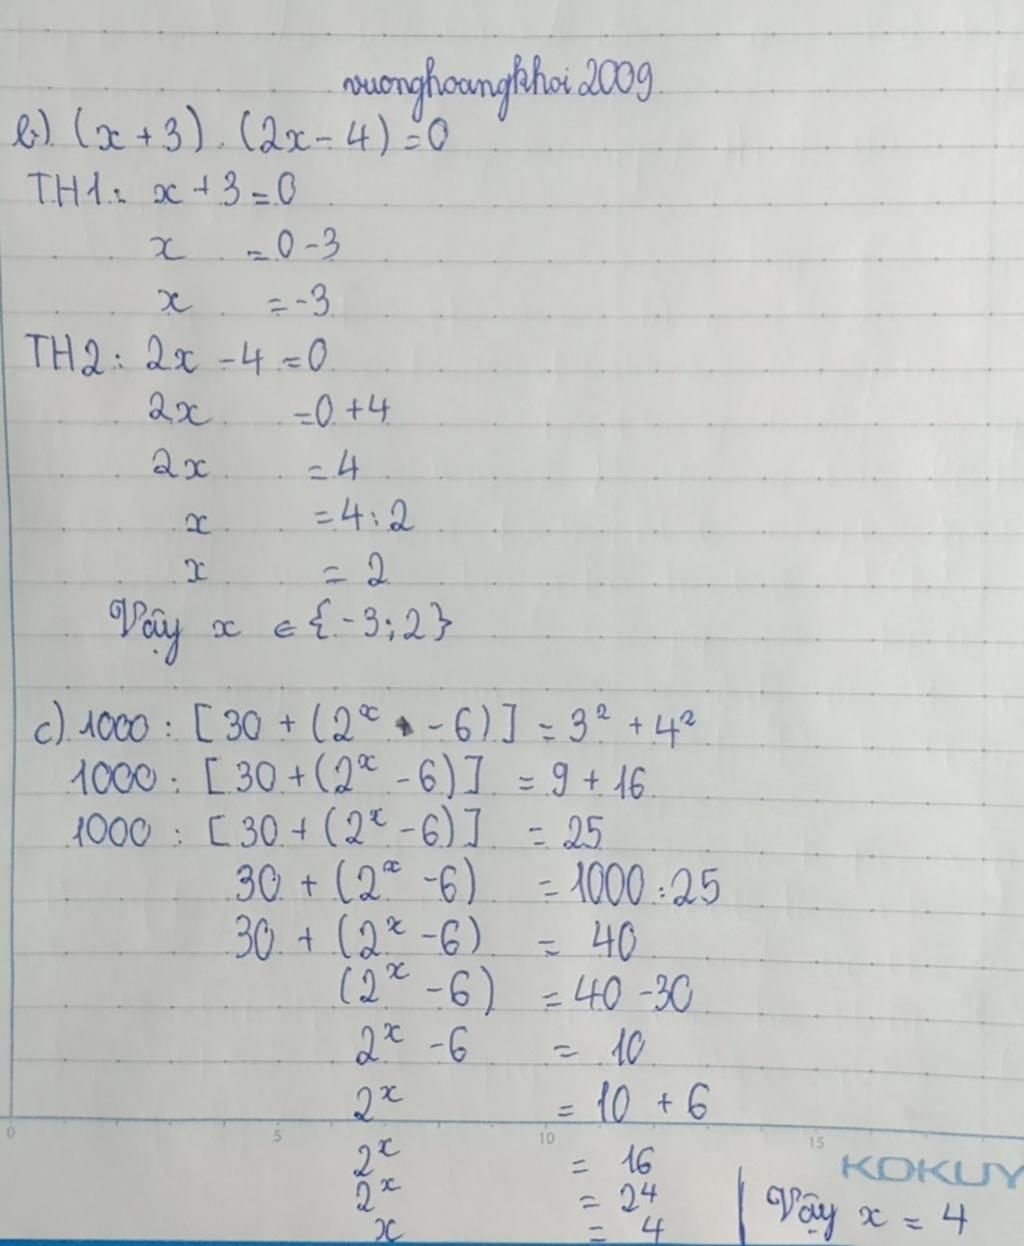 vuonghoangkhoi2009
b) (x + 3) . (2x - 4) = 0
TH1: x + 3 = 0
x = 0 - 3
x = -3
TH2: 2x - 4 = 0
2x = 0 + 4
2x = 4
x = 4 : 2
x = 2
Vậy x ∈ {-3; 2}
c) 1000 : [30 + (2ˣ - 6)] = 3² + 4²
1000 : [30 + (2ˣ - 6)] = 9 + 16
1000 : [30 + (2ˣ - 6)] = 25
30 + (2ˣ - 6) = 1000 : 25
30 + (2ˣ - 6) = 40
(2ˣ - 6) = 40 - 30
2ˣ - 6 = 10
2ˣ = 10 + 6
0 5 10 15
KOKUY
2ˣ = 16
2ˣ = 2⁴
x = 4
Vậy x = 4